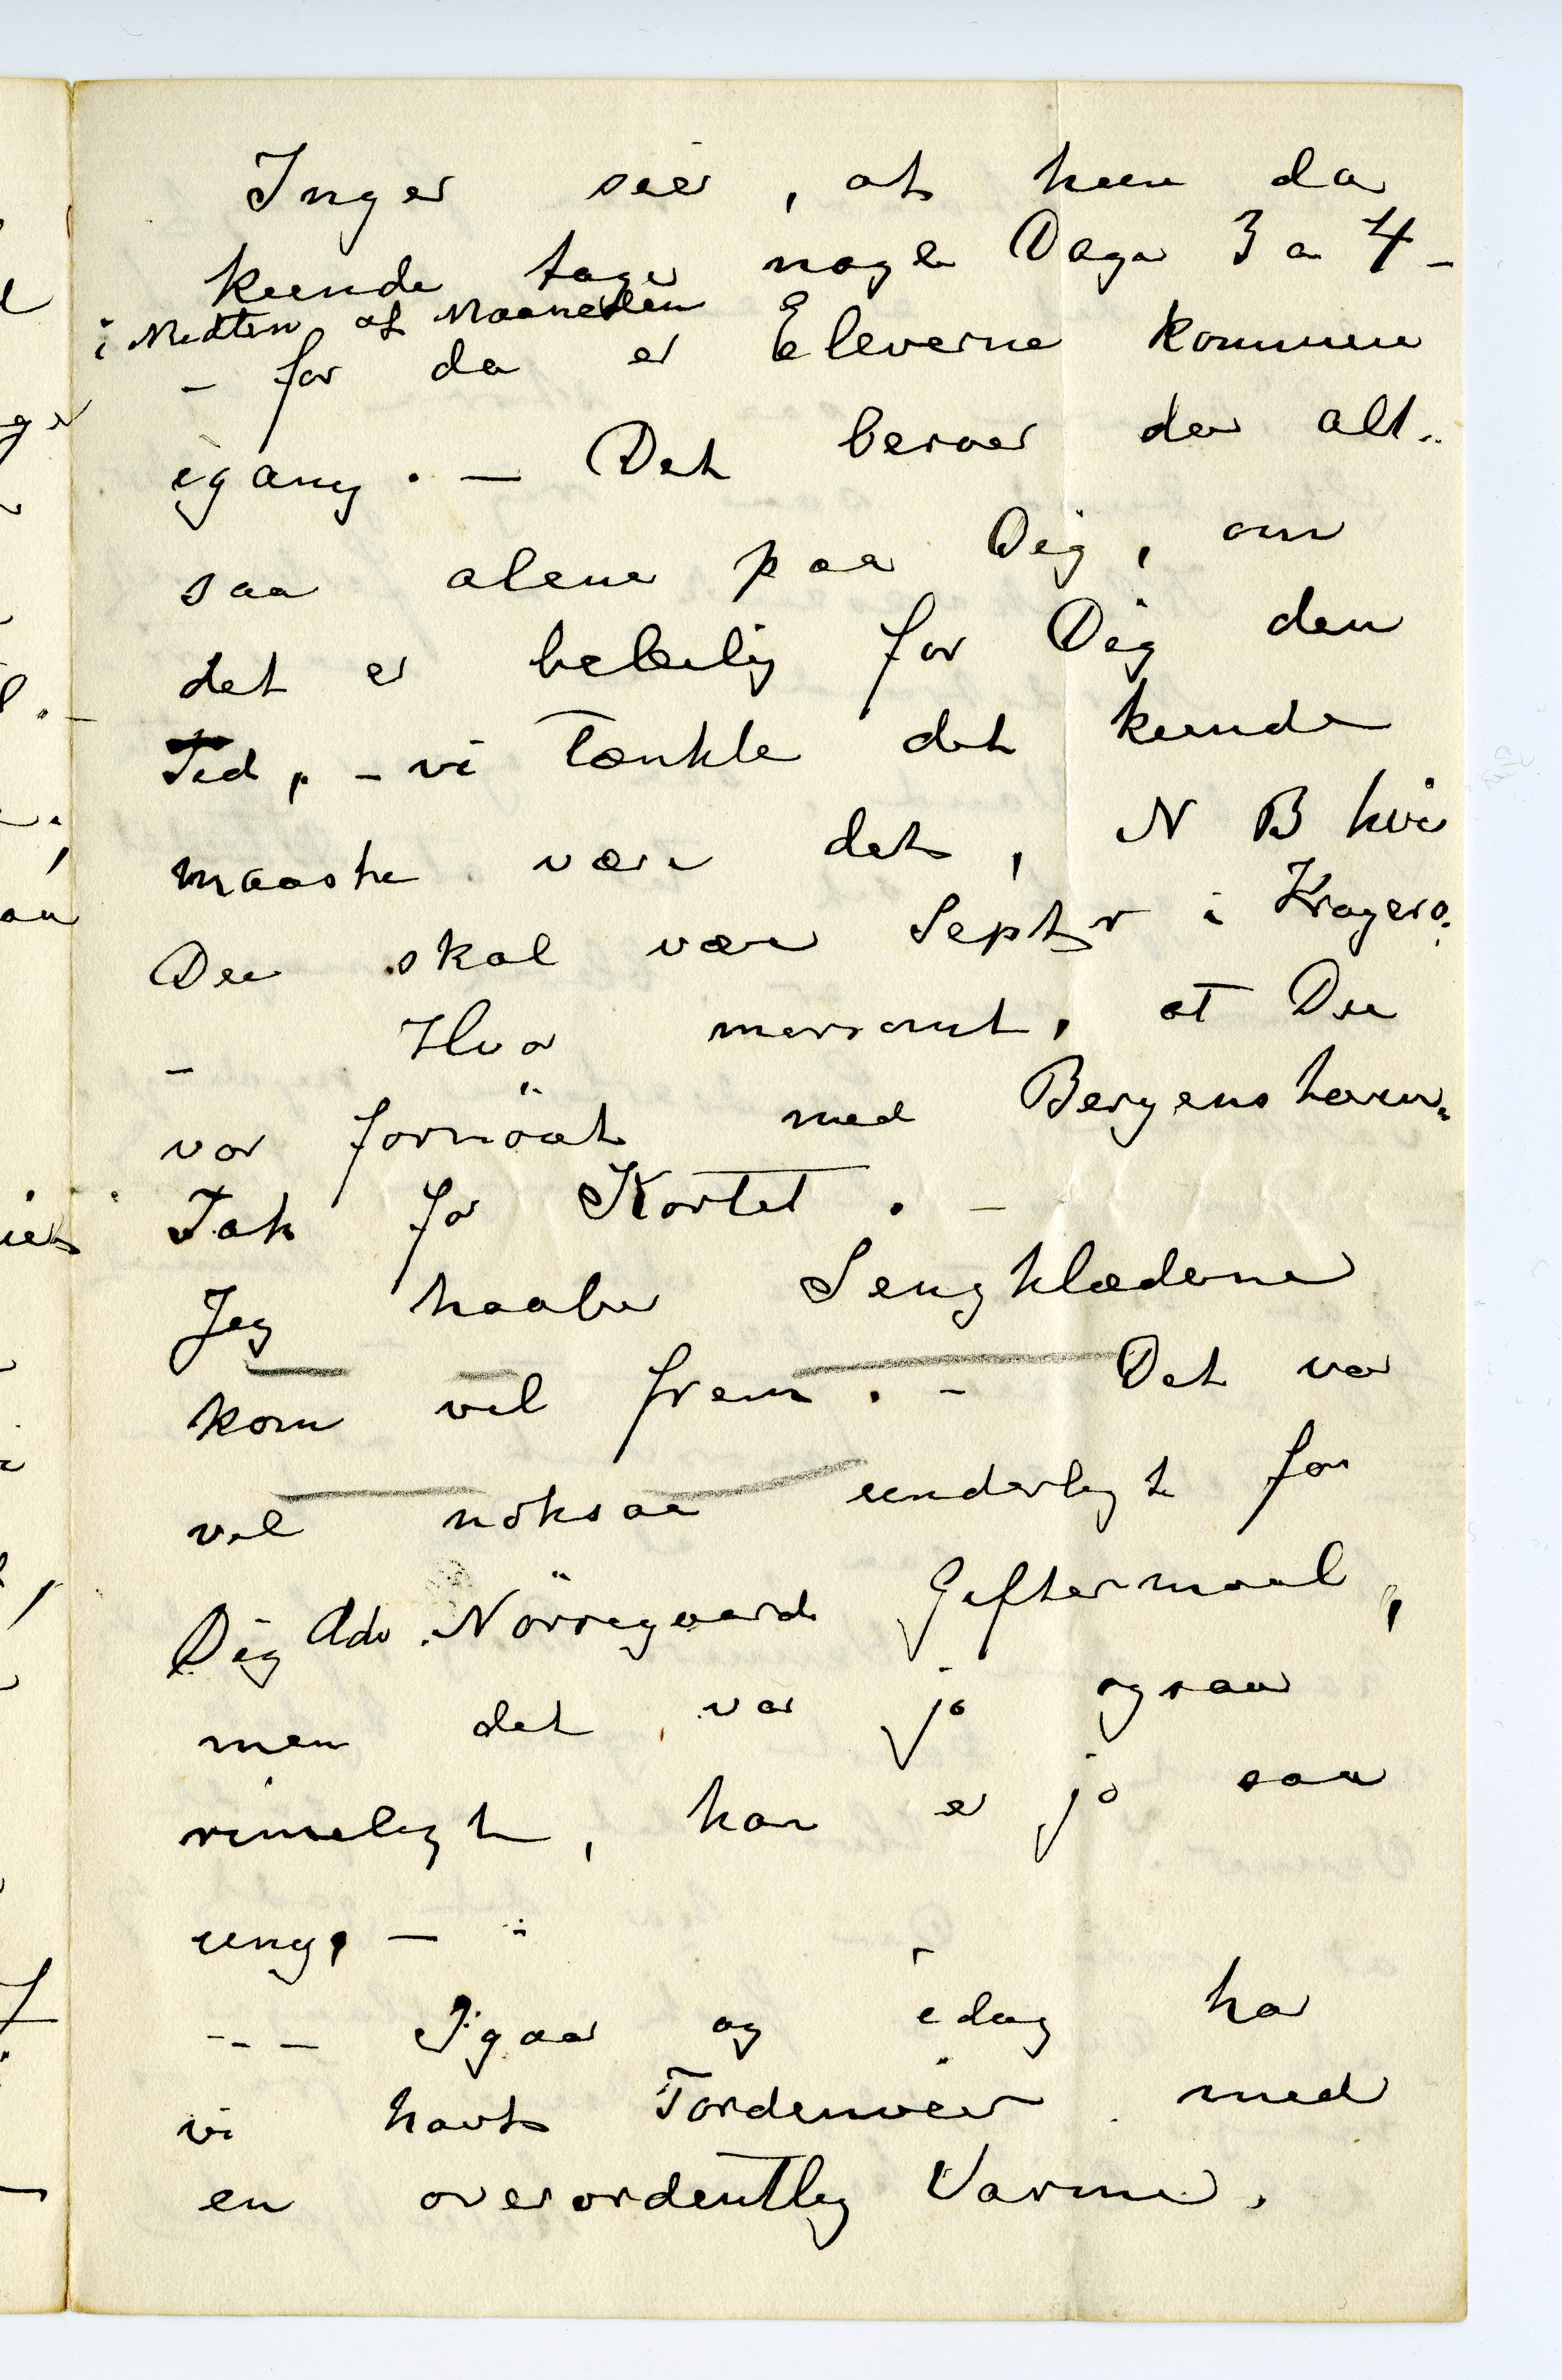 Inger seer, at hun da
kunde tage nogle Dage 3 a 4 –
i Midten af Maaneden
– for da er Eleverne kommen
igang. – Det beroer da alt-
saa alene paa Dig, om
det er beleilig for Dig den
Tid, – vi tænkte det kunde
maaske være det, N B hvis
Du skal være Septbr i Kragerø.
– Hvor morsomt, at Du
var fornöiet med Bergensturen.
Tak for Kortet. –
Jeg haaber Sengklæderne
kom vel frem. – Det var
vel noksaa underligt for
Dig Adv. Nörregaards Giftermaal,
men det var jo ogsaa
rimeligt, han er jo saa
ung. –
– – Igaar og idag har
vi havt Tordenveir med
en overordentlig Varme.